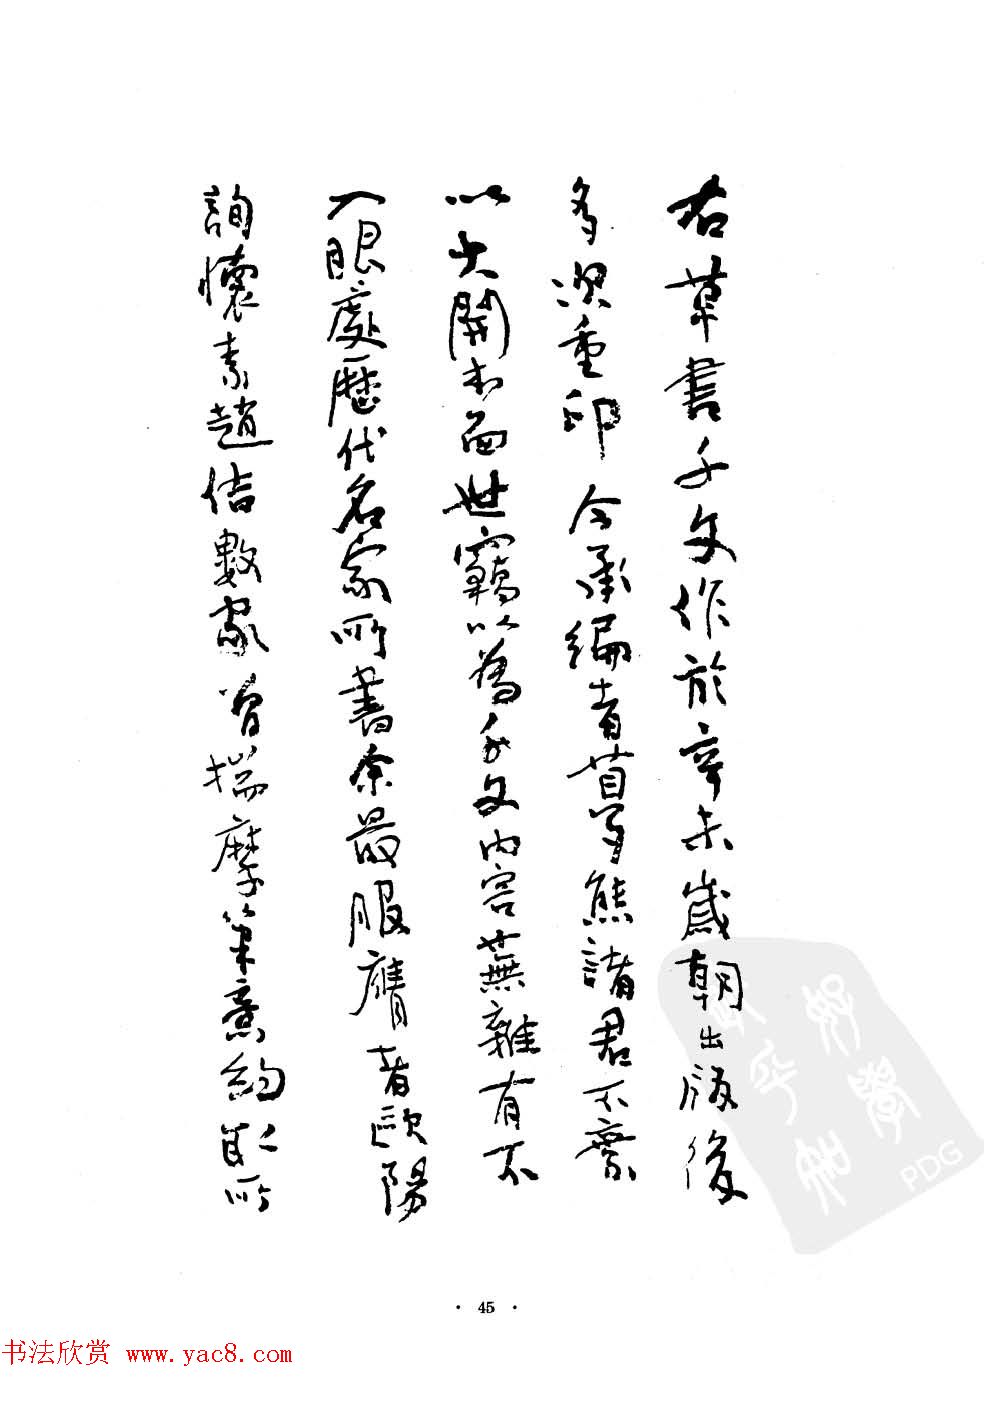 右草書千文作於辛未歲朝出版後
多次重印今承編者苗夢熊諸君不棄
以大開本面世竊以為千文內容蕪雜有不
入眼處歷代名家所書余最服膺者歐陽
詢懷素趙佶數家曾揣摩筆意約取所
· 45 ·
书法欣赏 www.yac8.com
PDG